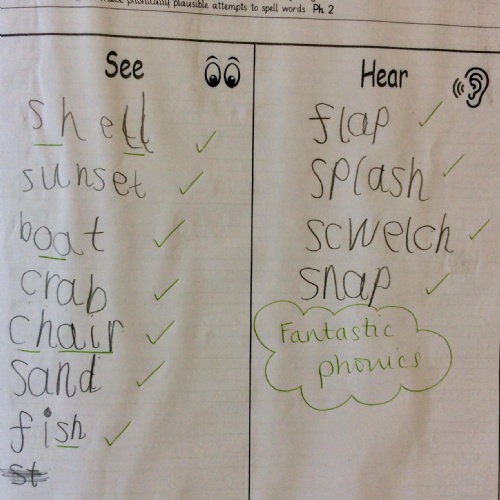 phonically plausible attempts to spell words Ph 2
See
shell
sunset
boat
crab
chair
sand
fish
st
Hear
flap
splash
scwelch
snap
Fantastic
phonics